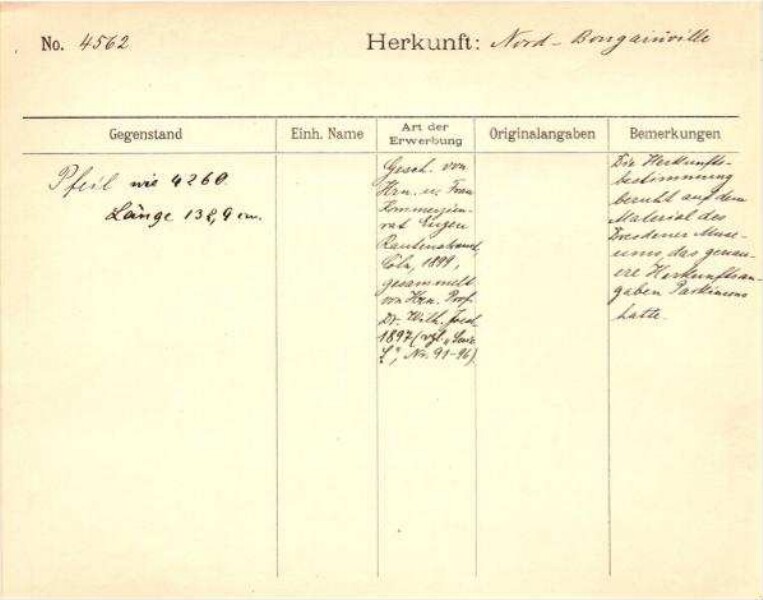 No. 4562
Herkunft: Nord-Bougainville
Gegenstand
Einh. Name
Art der
Erwerbung
Originalangaben
Bemerkungen
Pfeil wie 4260.
Länge 132,9 cm.
Gesch. von
Hrn. u. Frau
Kommerzien-
rat Eugen
Rautenstrauch,
Cöln, 1899,
gesammelt
von Hrn. Prof.
Dr. Wilh. Joest
1897 (vgl. „
", Nr. 91-96).
Die Herkunfts-
bestimmung
beruht auf dem
Material des
Dresdener Muse-
ums, das genau-
ere Herkunftsan-
gaben Parkinsons
hatte.